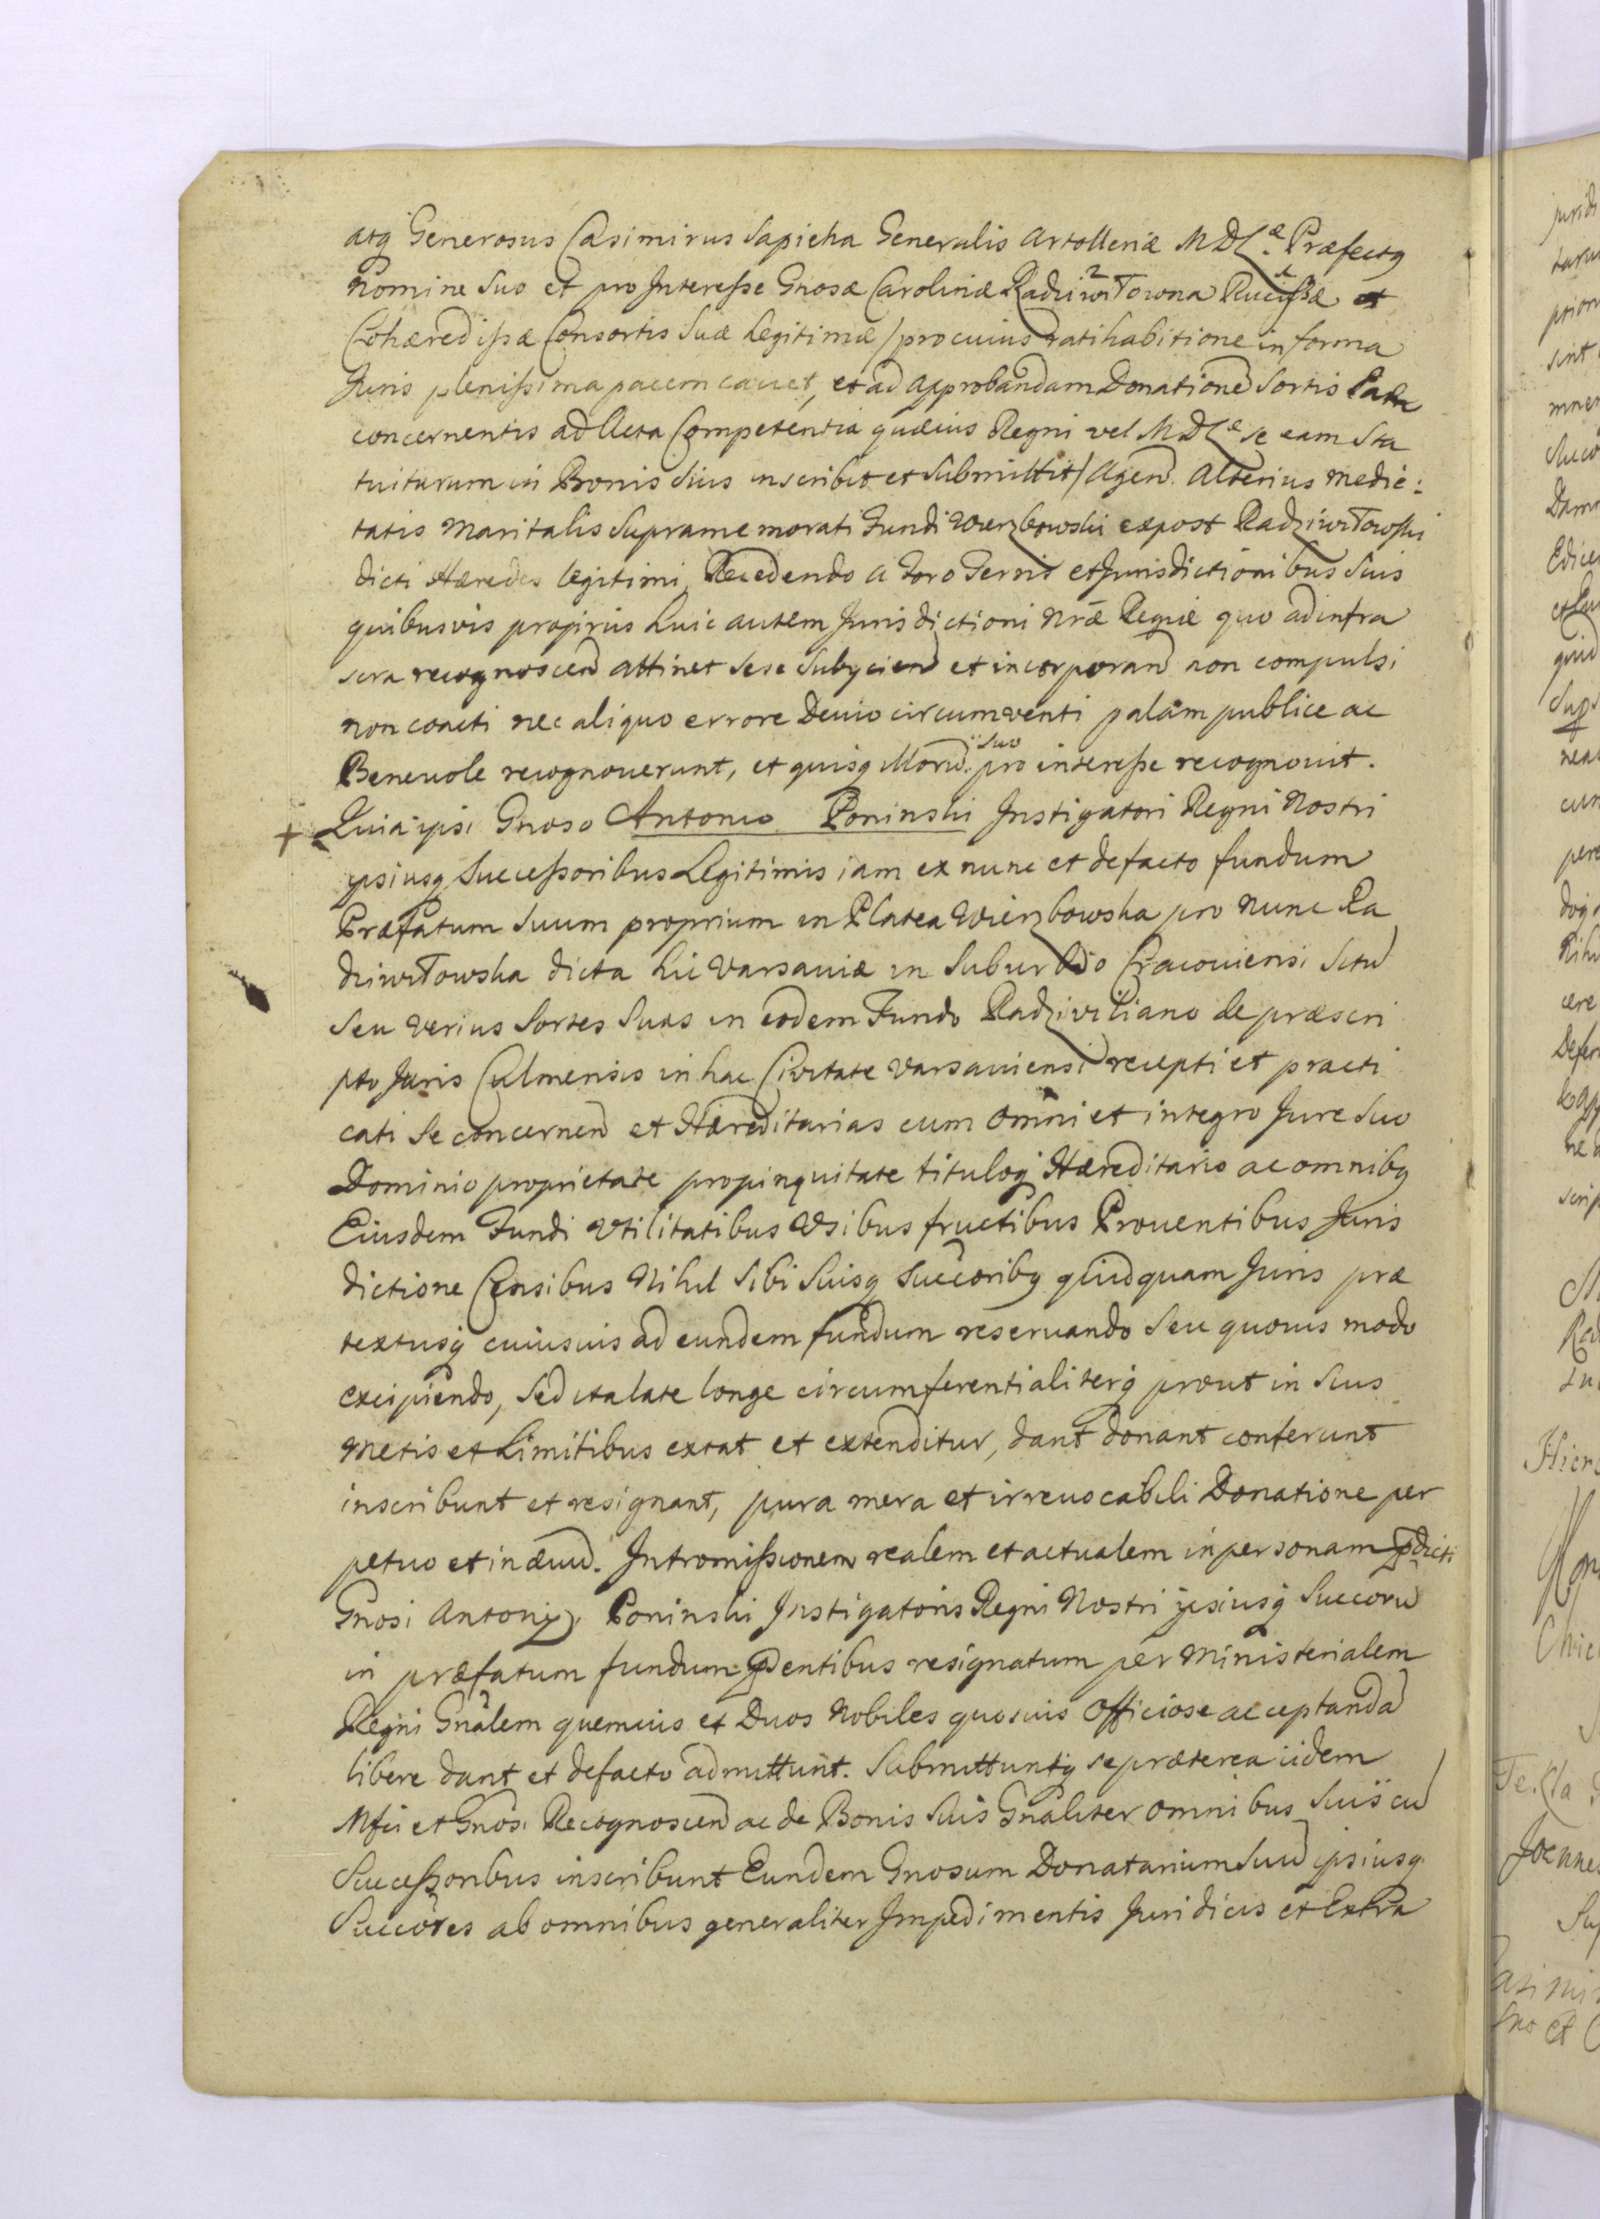 atq Generosus Casimirus Sapieha Generalis Artolleriæ M D L æ Præfectq
Nomine Suo et pro Interesse Gnosæ Carolinæ RadziwiTowna Ducissæ et
Cohæredissæ Consortis Suæ Legitimæ / pro cuius ratihabitione in forma
Juris plenissima pacem cauet, et ad approbandam Donatione Sortis
concernentis ad Acta Competentia quæuis Regni vel M D L æ se eam Sta
tuiturum in Bonis Suis inscribit et Submittit / Agen Alterius medie:
tatis Maritalis Supramemorati Fundi Wierzbowski expost RadziwiTowski
dicti Hæredes legitimi, Recedendo a Foro Terris et Jurisdictionibus Suis
quibusvis proprius huic autem Jurisdictioni Nræ Regiæ quo ad infra
scra recognoscen attinet sese Subycien et incorporan non compulsi
non coacti nec aliquo errore Deuio circumventi palam publice ac
Beneuole recognouerunt, et quisq Moru. suo pro interesse recognouit.
+ Quia ipsi Gnoso Antonio Poninski Instigatori Regni Nostri
ipsiusq Successoribus Legitimis iam ex nunc et defacto fundum
Præfatum Suum proprium in Platea Wierzbowska pro nunc Ra
dziwiTowska dicta hic Varsauiæ in Suburbio Cracouiensi Situ
Seu Verius Sortes Suas in eodem Fundo Radziviliano de præscri
pto Juris Culmensis in hac Civitate Varsauiensi recepti et practi
cati Se concernen et Hæreditarias cum omni et integro Jure Suo
Dominio proprietate propinquitate tituloq Hæreditario ac omnibq
Eiusdem Fundi Vtilitatibus Vsibus fructibus Prouentibus Juris
dictione Censibus Nihil Sibi Suisq Succoribq quidquam Juris præ
textusq cuiusuis ad eundem fundum reseruando Seu quouis modo
excipiendo, Sed ita late longe circumferentialiterq prout in Suis
Metis et Limitibus extat et extenditur, dant donant conferunt
inscribunt et resignant, pura mera et irreuocabili Donatione per
petuo et in æuu. Intromissionem realem et actualem in personam pdicti
Gnosi Antonij Poninski Instigatoris Regni Nostri ipsiusq Succoru
in præfatum fundum pdentibus resignatum per Ministerialem
Regni Gnalem quemuis et Duos Nobiles quosuis Officiose acceptanda
libere dant et defacto admittunt. Submittuntq se præterea iidem
Mfci et Gnosi Recognoscen ac de Bonis Suis Gnaliter omnibus Suis cu
Successoribus inscribunt Eundem Gnosum Donatarium Suu ipsiusq
Succores ab omnibus generaliter Impedimentis Juridicis et Extra